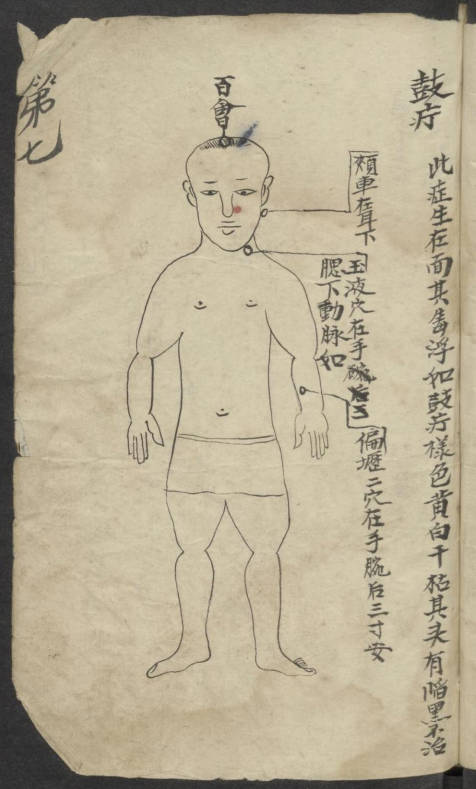 鼓疔
此症生在面其唇浮如鼓疔樣色黄白干枯其头有陷黑不治
百會
頰車在耳下
玉液穴在手腕后三
腮下動脉如
偏壢二穴在手腕后三寸安
第七